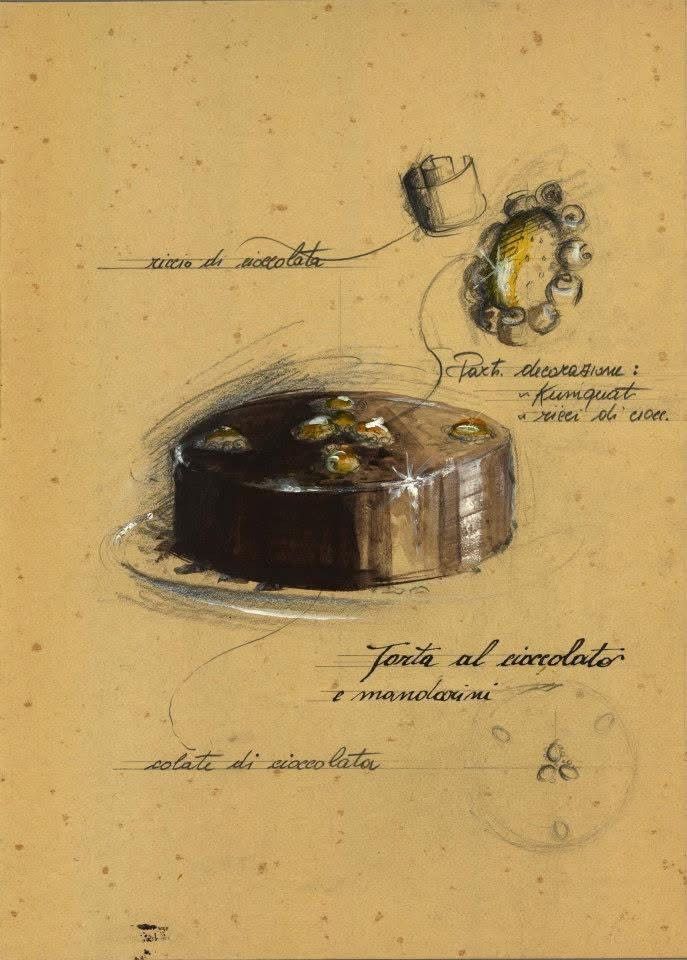 riccio di cioccolata
Part. decorazione:
~ Kumquat
~ ricci di ciocc.
Torta al cioccolato
e mandarini
colate di cioccolata